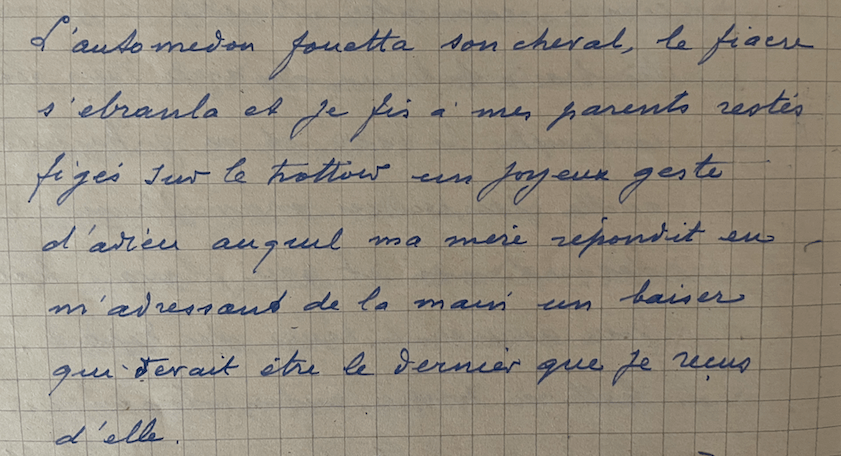 L'automedon fouetta son cheval, le fiacre
s'ebranla et je fis à mes parents restés
figés sur le trottoir un joyeux geste
d'adieu auquel ma mère répondit en
m'adressant de la main un baiser
qui devait être le dernier que je reçus
d'elle.